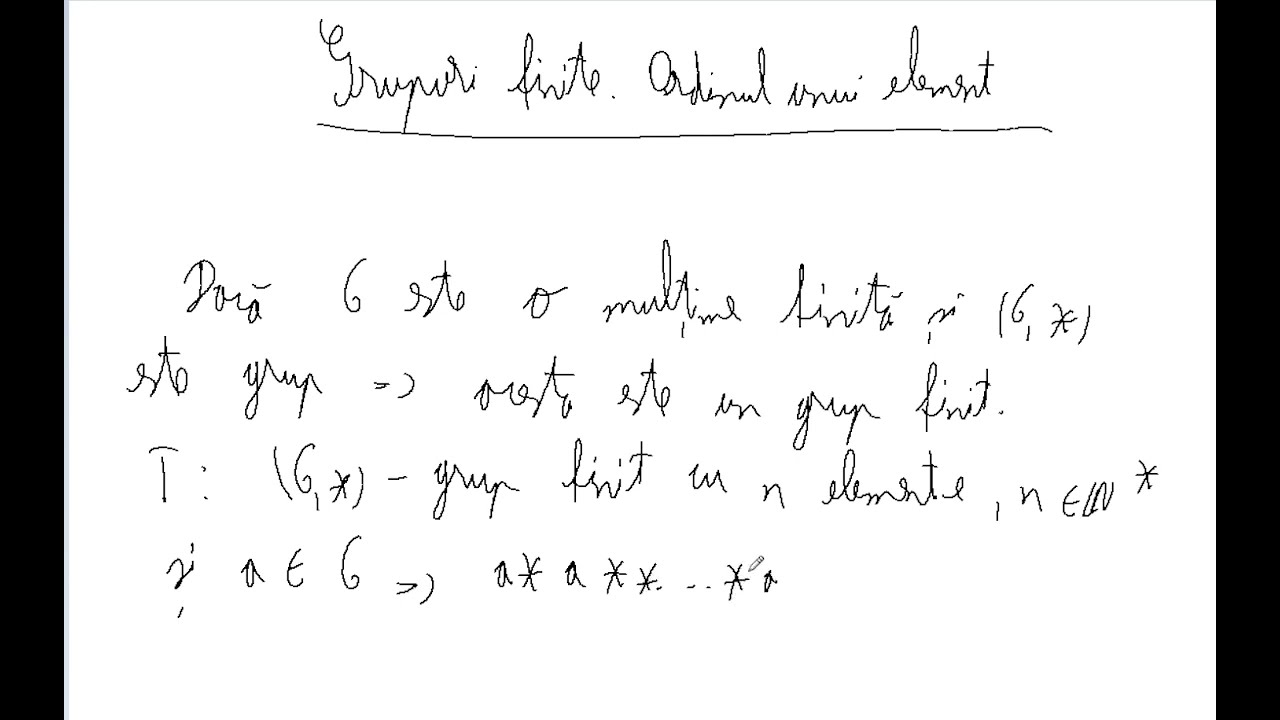 Grupuri finite. Ordinul unui element
Dacă G este o mulțime finită și (G, *)
este grup => acesta este un grup finit.
T: (G, *) - grup finit cu n elemente, n ∈ ℕ*
și a ∈ G => a * a * * ... * a